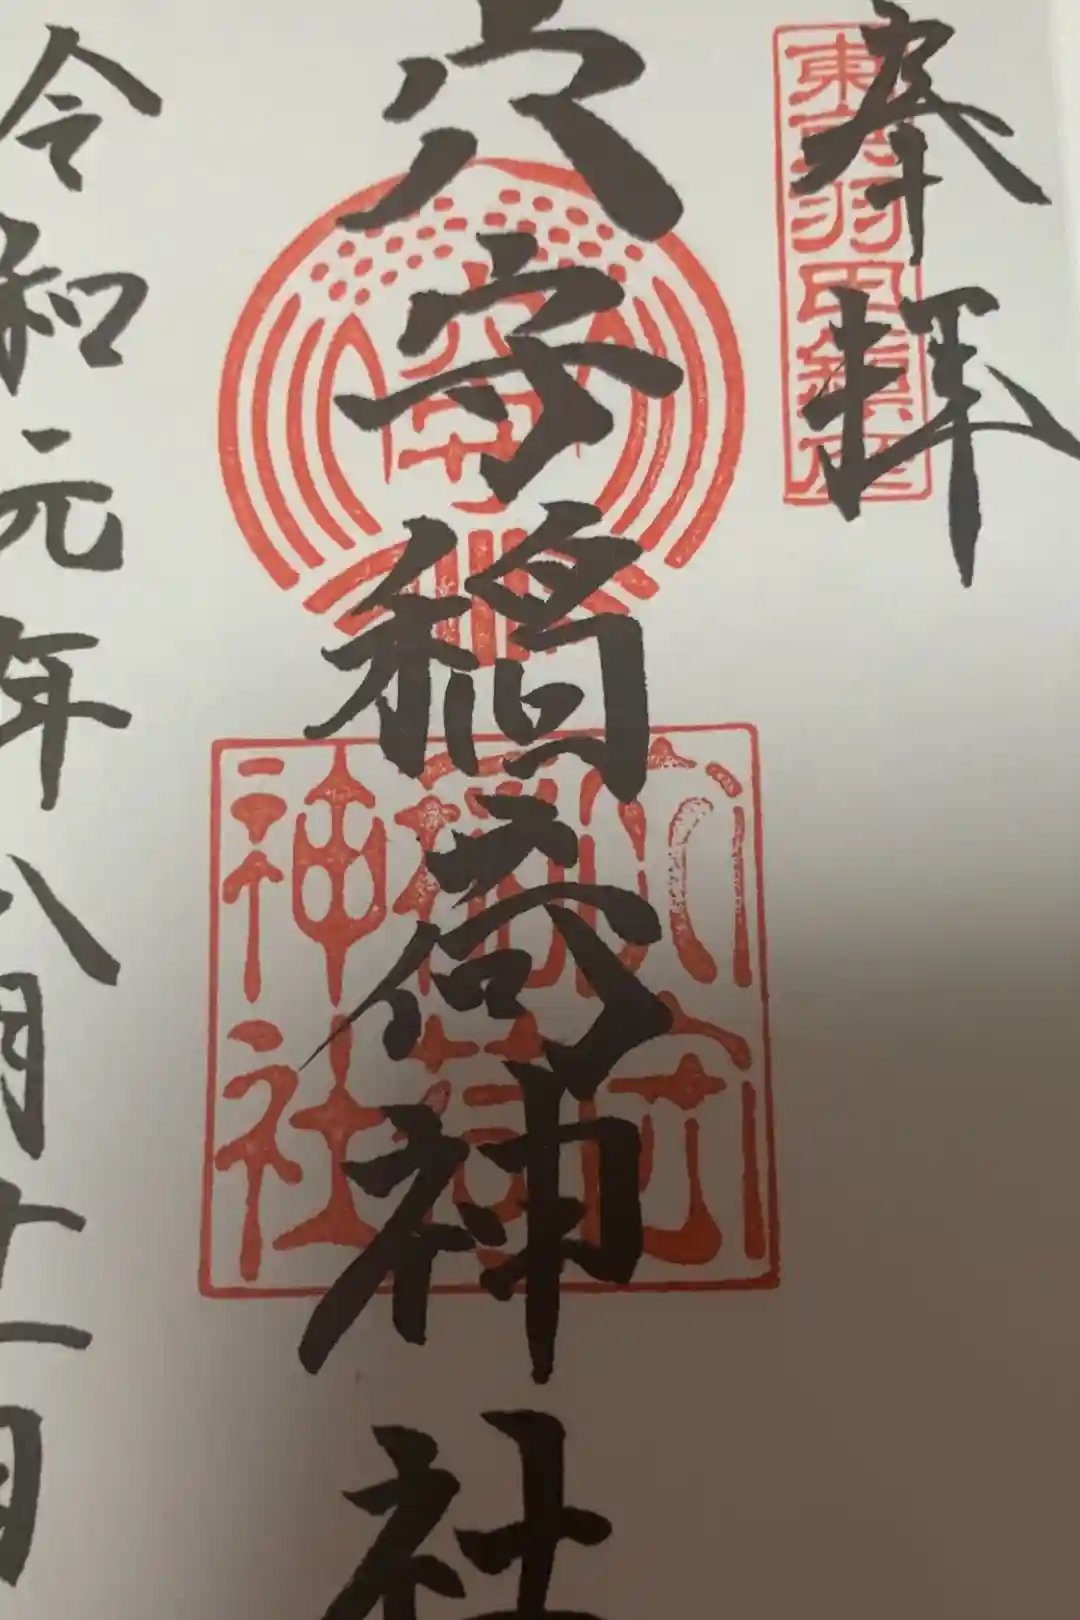 奉拝
東京羽田鎮座
穴守稲荷神社
穴守
穴守
稲荷
神社
令和元年八月十一日